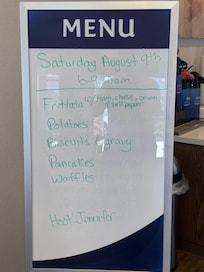 MENU
Saturday August 9th
Frittata w/ Ham, cheese, onion
& bell pepper
Potatoes
Biscuits & gravy
Pancakes
Waffles
Host: Jennifer